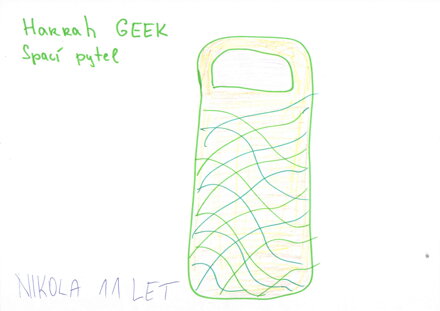 Hannah GEEK
Spací pytel
NIKOLA 11 LET